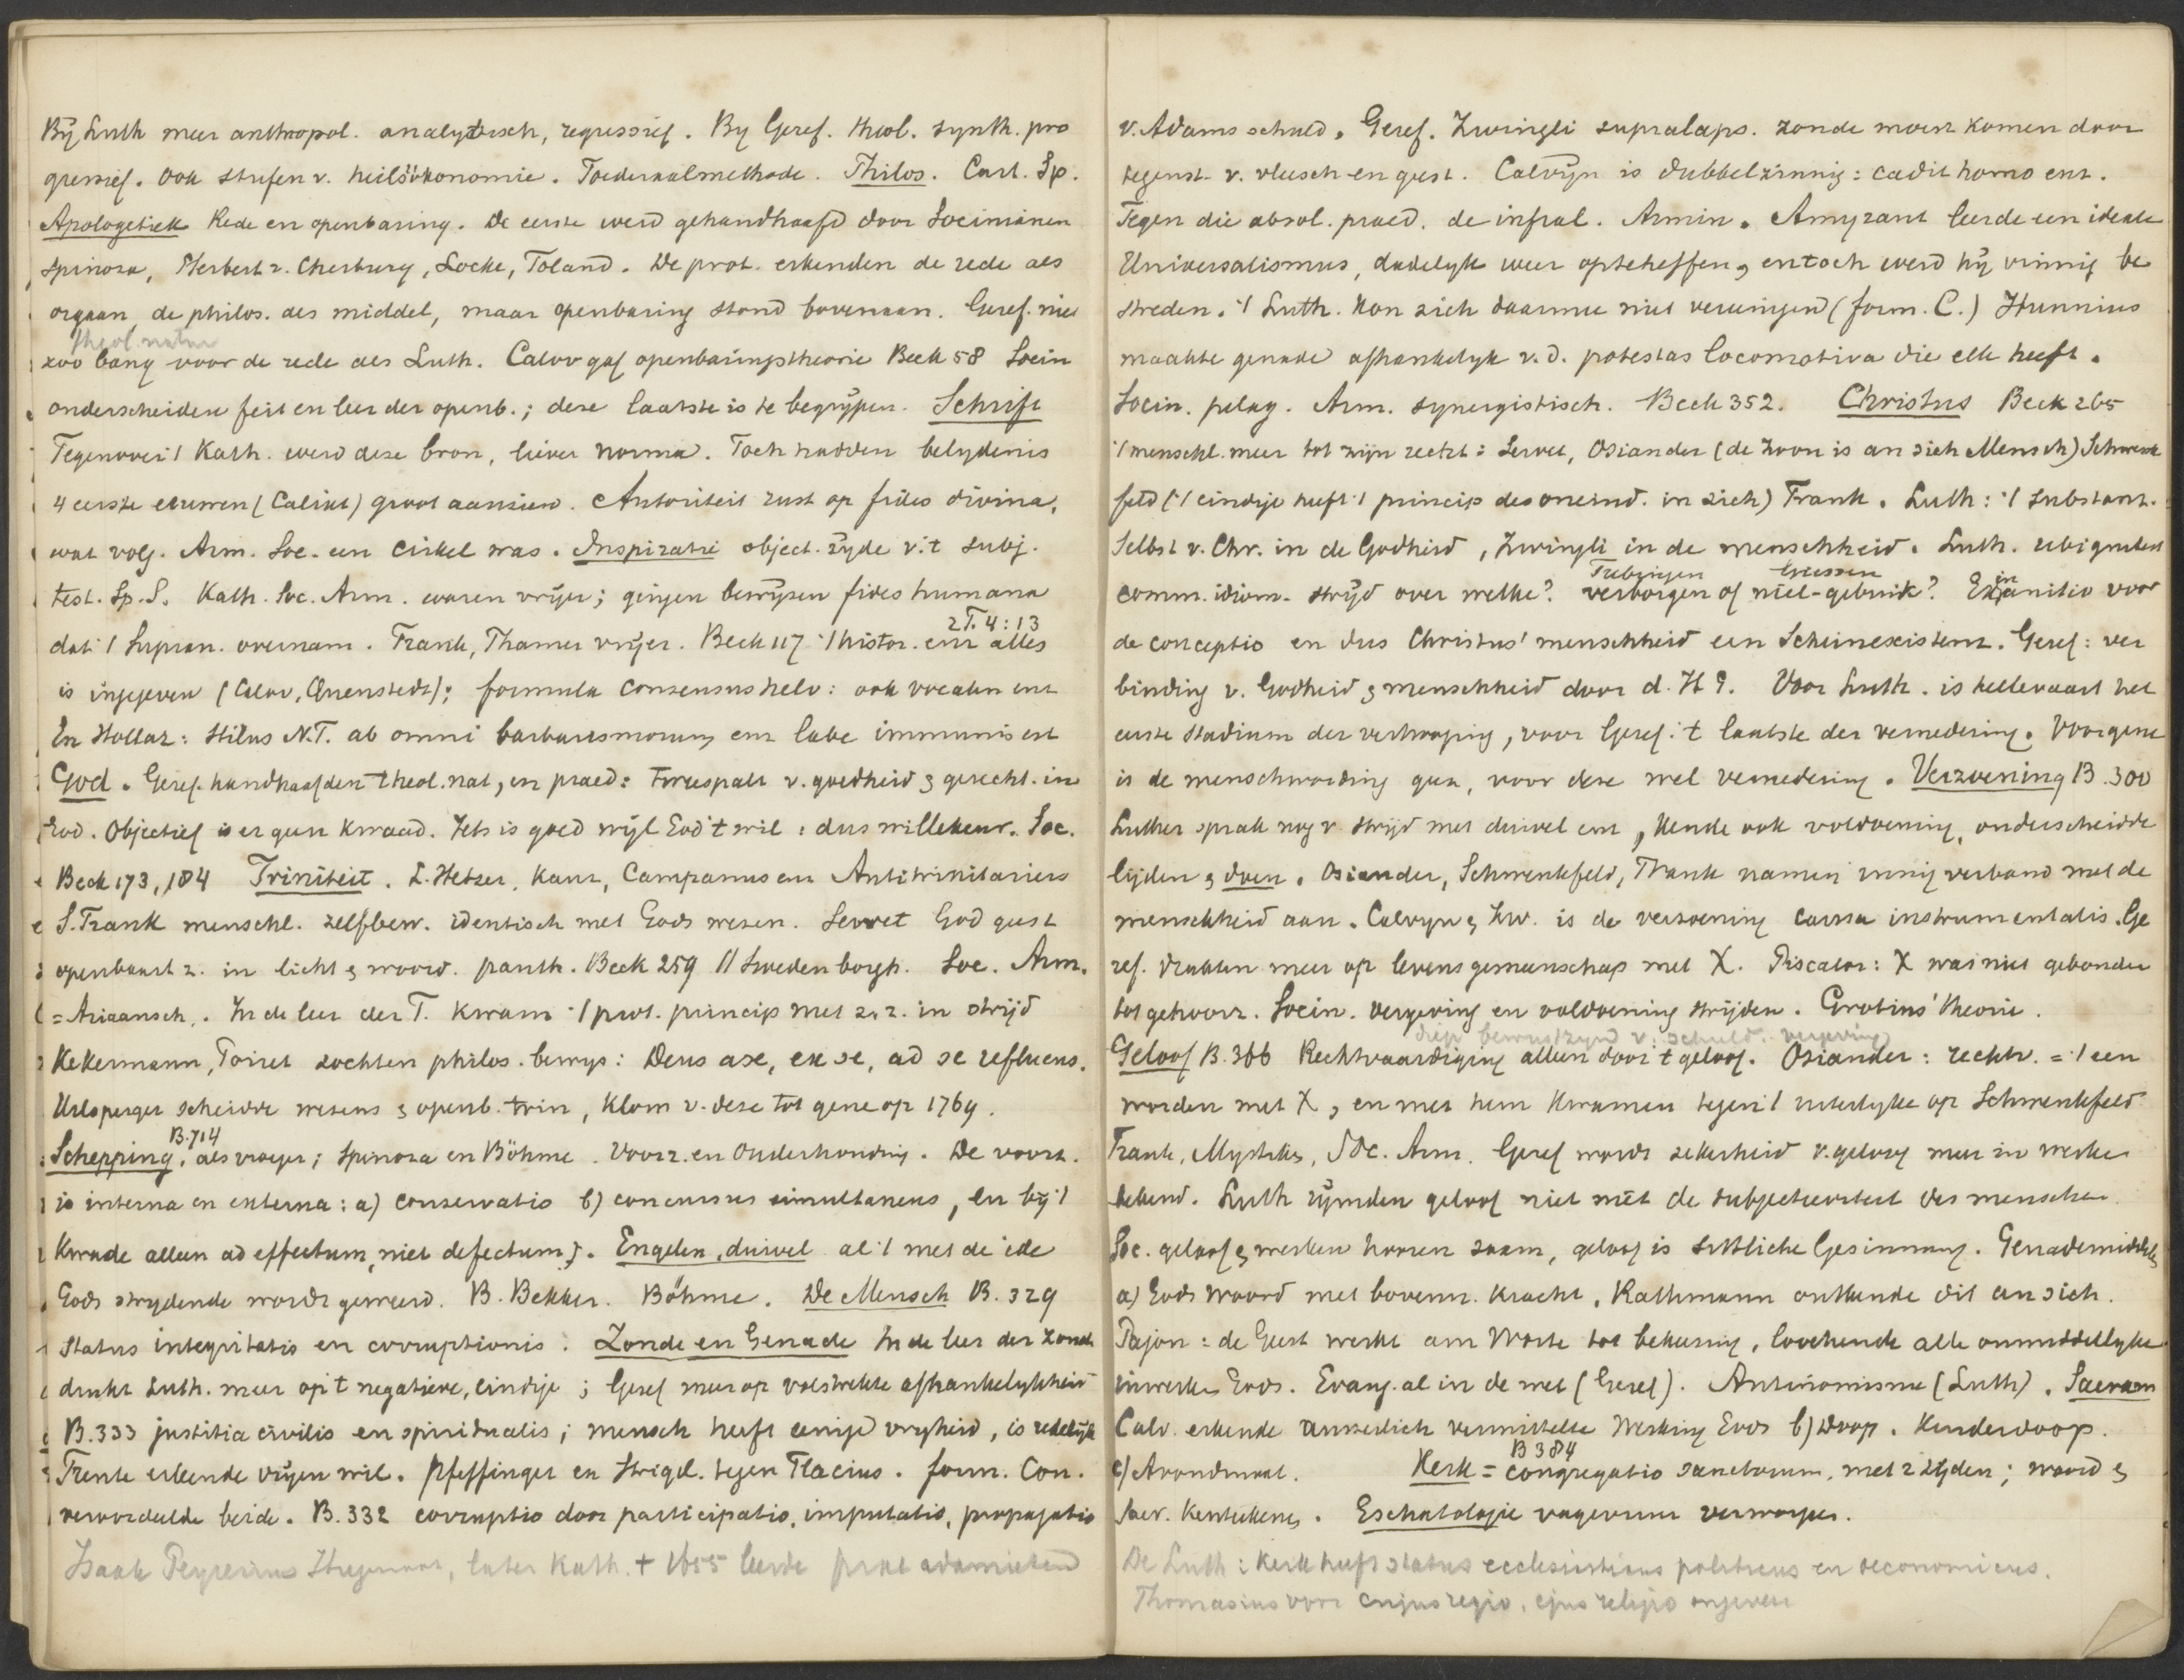 Bij Luth meer anthropol. analytisch, regressief. By Geref. theol. synth. pro
gressief. Ook stufen v. heilsökonomie. Foederaalmethode. Philos. Cart. Sp.
Apologetiek Rede en openbaring. De eerste werd gehandhaafd door Socinianen
Spinoza, Herbert v. Cherbury, Locke, Toland. De prot. erkenden de rede als
orgaan, de philos. als middel, maar openbaring stond bovenaan. Geref. niet
theol. natur
zoo bang voor de rede als Luth. Calov gaf openbaringstheorie Beck 58 Socin
onderscheiden feit en leer der openb.; deze laatste is te begrijpen. Schrift
Tegenover 't Kath. werd deze bron, liever norma. Toch hadden belydenis
4 eerste eeuwen (Calixt) groot aanzien. Autoriteit rust op fides divina,
wat volg. Arm. Soc. een cirkel was. Inspiratie object. zijde v. 't subj.
test. Sp. S. Kath. Soc. Arm. waren vrijer; gingen bewijzen fides humana
2 T. 4:13
dat 't Supran. overnam. Frank, Thamer vrijer. Beck 117 't histor. enz alles
is ingegeven (Calov, Quenstedt); formula consensus helv: ook vocalen enz
En Hollaz: Stilus N.T. ab omni barbarismorum enz labe immunis est
God. Geref. handhaafden theol. nat, en praed: Zwiespalt v. goedheid & gerecht. in
God. Objectief is er geen kwaad. Iets is goed wijl God 't wil: dus willekeur. Soc.
Beck 173, 184 Triniteit. L. Hetzer, Kauz, Campanus enz Antitrinitariers
S. Frank menschl. zelfbew. identisch met Gods wezen. Servet God geest
openbaart z. in licht & woord. panth. Beck 259 // Swedenborgh. Soc. Arm.
= Ariaansch. In de leer der T. kwam 't prot. princip met z. z. in strijd
Kekermann, Poiret zochten philos. bewys: Deus a se, ex se, ad se refluens.
Urlsperger scheidde wezens & openb. trin, klom v. deze tot gene op 1769.
B. 714
Schepping, als vroeger; Spinoza en Böhme. Voorz. en Onderhouding. De voorz.
is interna en externa: a) conservatio b) concursus simultaneus, en bij 't
kwade alleen ad effectum, niet defectum. Engelen, duivel al 't met de idee
Gods strydende wordt geweerd. B. Bekker. Böhme. De Mensch B. 329
status integritatis en corruptionis. Zonde en Genade In de leer der zonde
drukt Luth. meer op 't negatieve, eindige; Geref meer op volstrekte afhankelykheid
B. 333 justitia civilis en spiritualis; mensch heeft eenige vryheid, is redelijk
Trente erkende vrijen wil. Pfeffinger en Strigel. tegen Flacius. form. Con.
veroordeelde beide. B. 332 corruptio door participatio, imputatio, propagatio
Isaak Peyrerius Hugenoot, later Kath. † 1655 leerde prae adamieten
v. Adams schuld. Geref. Zwingli supralaps. zonde moest komen door
tegenst. v. vleesch en geest. Calvijn is dubbelzinnig: cadit homo enz.
Tegen die absol. praed. de infral. Armin. Amyraut leerde een ideale
Universalismus, dadelyk weer opteheffen, en toch werd hij vinnig be
streden. 't Luth. kon zich daarmee niet vereenigen (form. C.) Hunnius
maakte genade afhankelyk v. d. potestas locomotiva die elk heeft.
Socin. pelag. Arm. synergistisch. Beck 352. Christus Beck 265
't menschl. meer tot zijn recht: Servet, Osiander (de Zoon is an sich Mensch) Schwenk
feld ('t eindige heeft 't princip des oneind. in zich) Frank. Luth: 't substant.
Selbst v. Chr. in de Godheid, Zwingli in de menschheid. Luth. ubiquiteit
Tubingen Giessen
comm. idiom. strijd over welke? verborgen of niet-gebruik? Exinanitio voor
de conceptio en dus Christus' menschheid een Scheinexistenz. Geref: ver
binding v. Godheid & menschheid door d. H G. Voor Luth. is hellevaart het
eerste stadium der verhooging, voor Geref. 't laatste der vernedering. Voor gene
is de menschwording geen, voor deze wel vernedering. Verzoening B. 300
Luther sprak nog v. strijd met duivel enz, kende ook voldoening, onderscheidde
lijden & doen. Osiander, Schwenkfeld, Frank namen innig verband met de
menschheid aan. Calvyn & Zw. is de verzoening causa instrumentalis. Ge
ref. drukten meer op levensgemeenschap met X. Piscator: X was niet gebonden
tot gehoorz. Socin. vergeving en voldoening strijden. Grotius' theorie.
diep bewustzyn v. schuld. vergeving
Geloof B. 366 Rechtvaardiging alleen door 't geloof. Osiander: rechtv. = 't een
worden met X, en met hem kwamen tegen 't uiterlyke op Schwenkfeld
Frank, Mystieke, Soc. Arm. Geref wordt zekerheid v. geloof meer in werken
bekend. Luth rijmden geloof niet met de subjectiviteit des menschen
Soc. geloof & werken hooren saam, geloof is sittliche Gesinnung. Genademiddelen
a) Gods woord met bovenn. kracht. Rathmann ontkende dit an sich.
Pajon: de Geest werkt am Worte tot bekeering, loochende alle onmiddellyke
inwerken Gods. Evang. al in de wet (Geref). Antinomisme (Luth). Sacram
Calv. erkende äusserlich vermittelte Werking Gods b) Doop. Kinderdoop.
B 384
c) Avondmaal. Kerk = congregatio sanctorum, met 2 zijden; woord &
sacr. kenteekenen. Eschatologie vagevuur verworpen.
De Luth: kerk heeft status ecclesiasticus politicus en oeconomicus.
Thomasius voor cujus regio, ejus religio